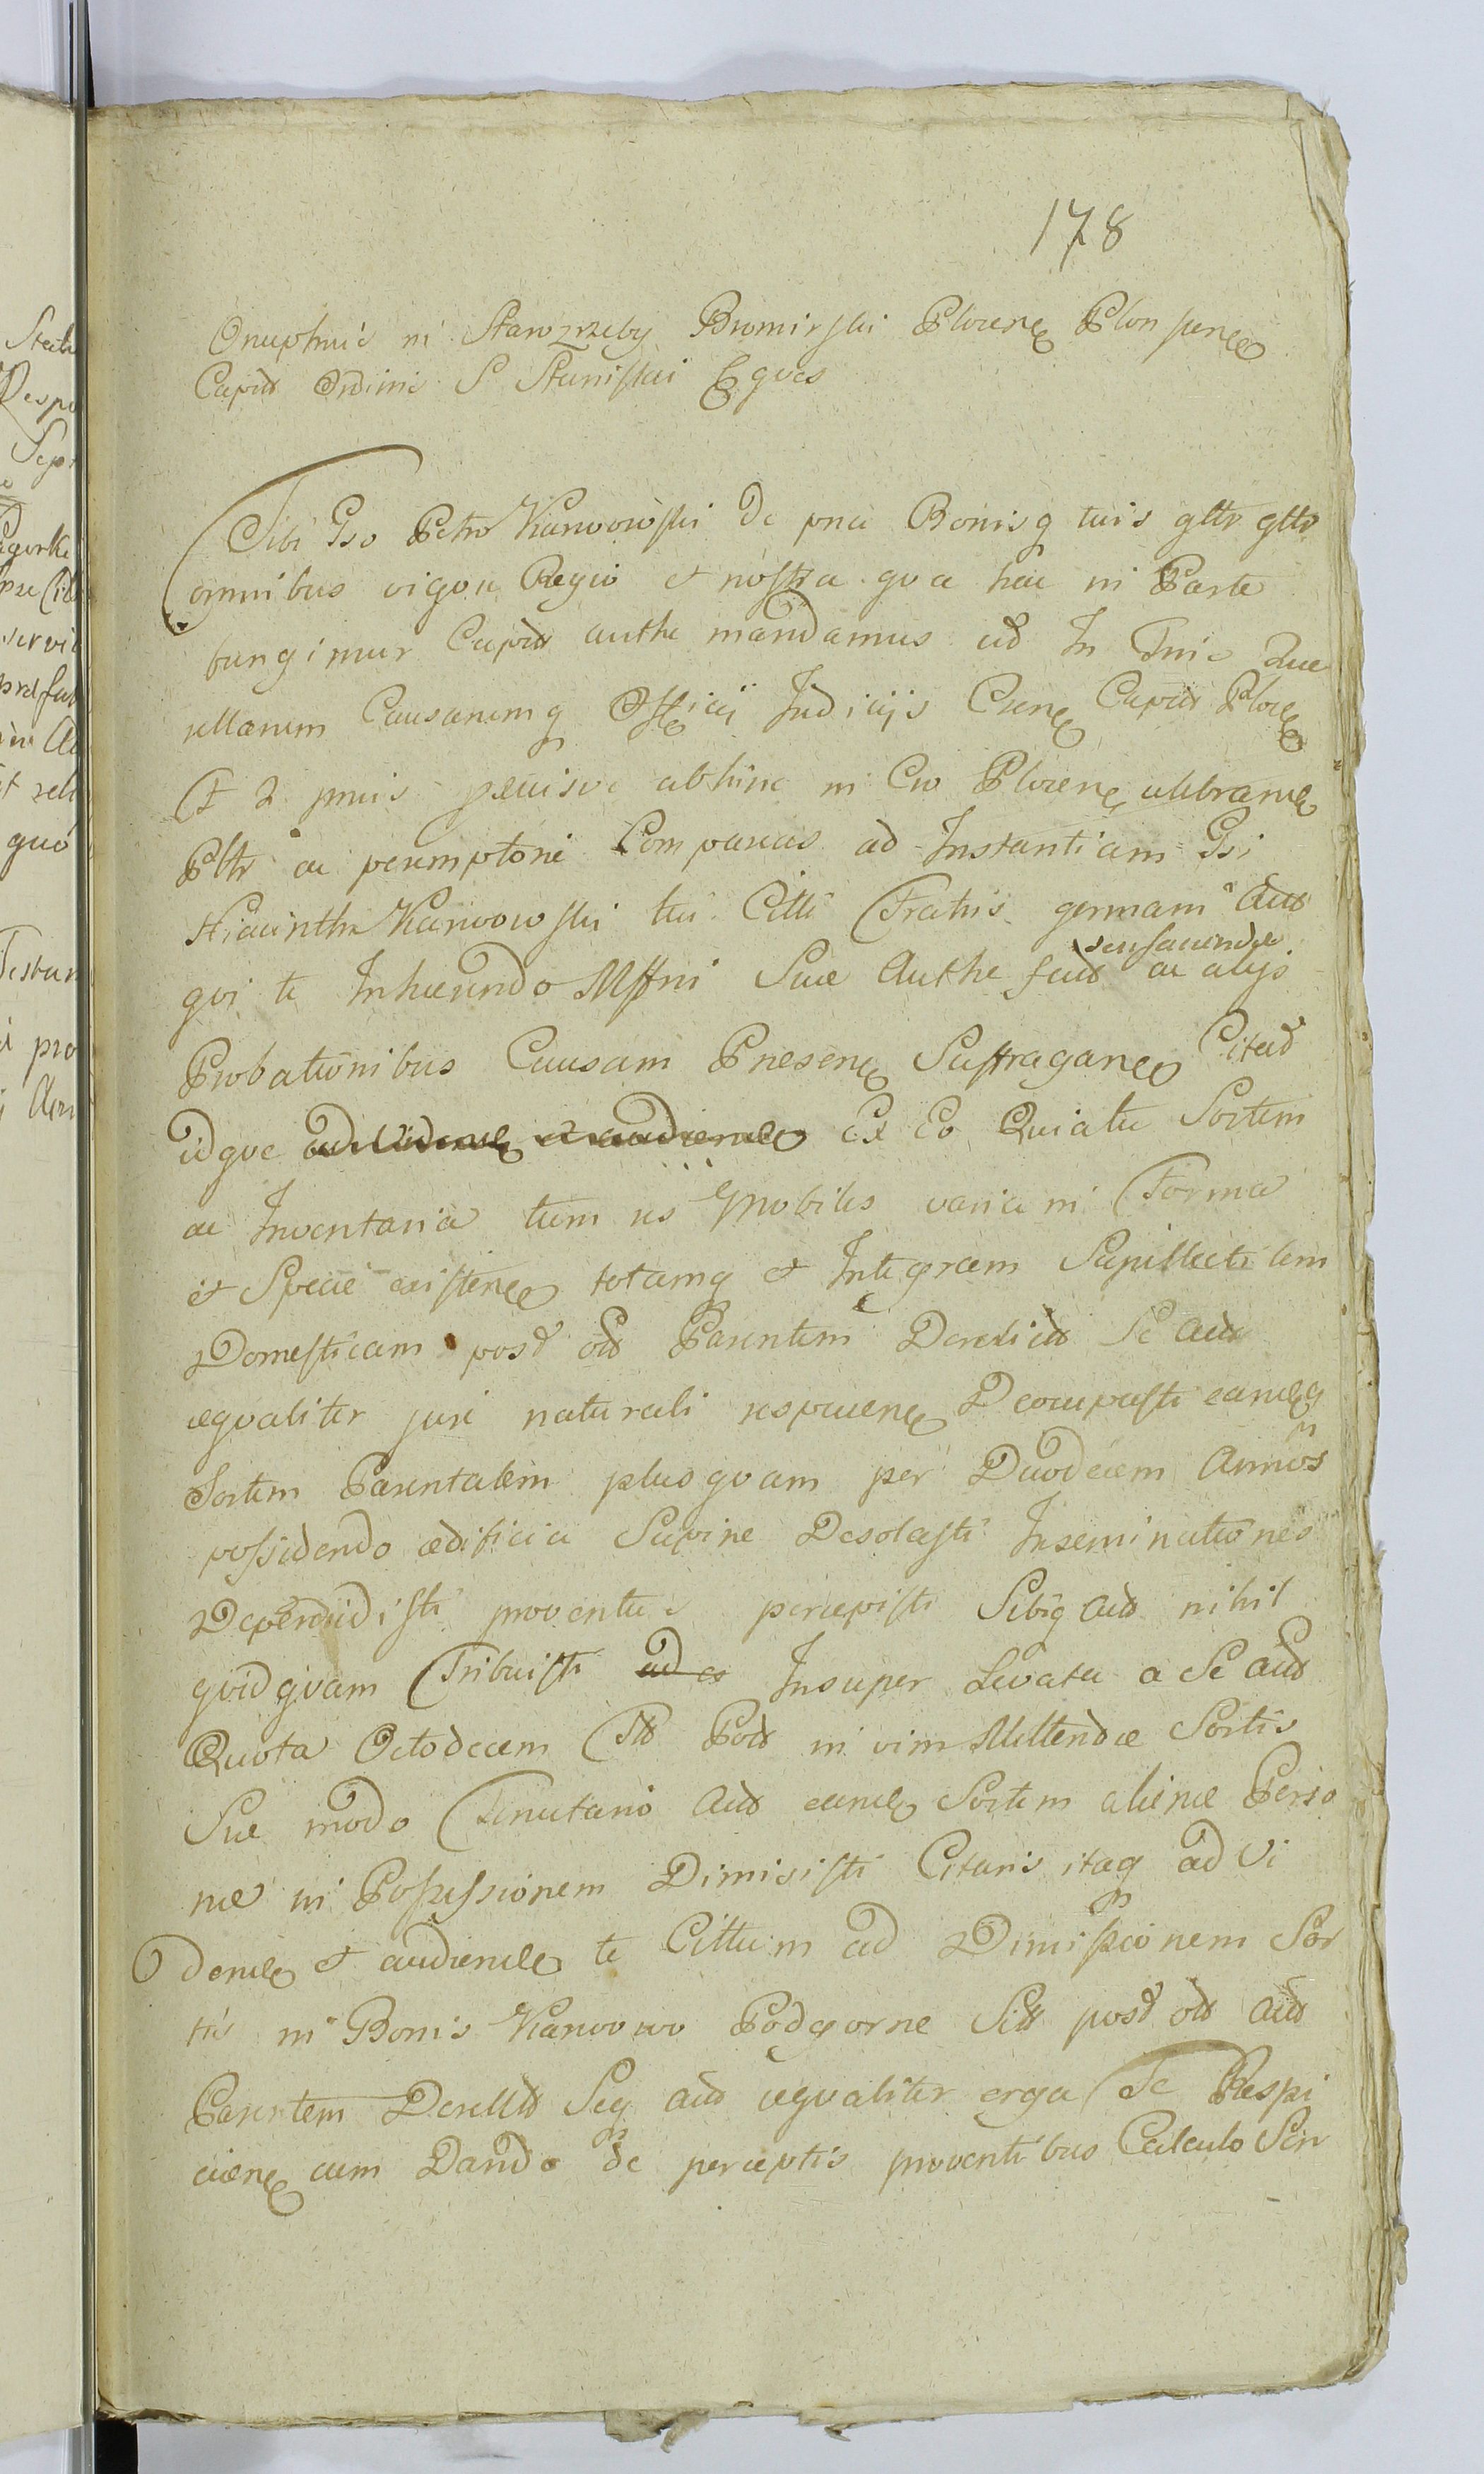 178
Onuphrius in Starozrzeby Bromirski Plocen Plonscen
Capitt Ordinis S Stanislai Eques
Tibi Gso Petro Karwowski de pna Bonisq tuis gttr gttr
omnibus vigore Regio et nostra qva hac in Parte
fungimur Capitt authe mandamus ut In Tnis Que
rellarum Causarumq Officij Judicijs Crsen Capitt Plocen
F 2 pmis abhinc in Cro Plocen celebrand
Pltr ac peremptorie Compareas ad Instantiam Gsi
Hiacinthi Karwowski tui Citti Fratris germani Actt
qvi te Inhaerendo Mffni Suae Authe factt ac alijs
Probationibus Causam Praesen Suffragane Citatt
idqve ad Vidend et audiend Ex Eo Quia tu Sortem
ac Inventaria tum res Mobiles varia in Forma
et Specie existen totamq et Integram Supillectilem
Domesticam post ott Parentem Derelictt Se Actt
aeqvaliter jure naturali respicien Deoccupasti eandq
Sortem Parentalem plusqvam per Duodecem Annos
possidendo aedificia Supine Desolasti Inseminationes
Deperdidisti proventus percepisti Sibiq Actt nihil
qvidqvam Tribuisti ad es Insuper Levata a Se Actt
Quota Octodecem Ftt Pott in vim Mittendae Sortis
Suae modo Tenutario Actt eand Sortem alienae Perso
nae in Possessionem Dimisisti Citaris itaq ad Vi
dend et audiend te Cittum ad Dimissionem Sor
tis in Bonis Karwowo Podgorne Sitt post ott Actt
Parentem Derelctt Seq Actt aeqvaliter erga Te Respi
cien cum Dando de perceptis proventibus Calculo Scri